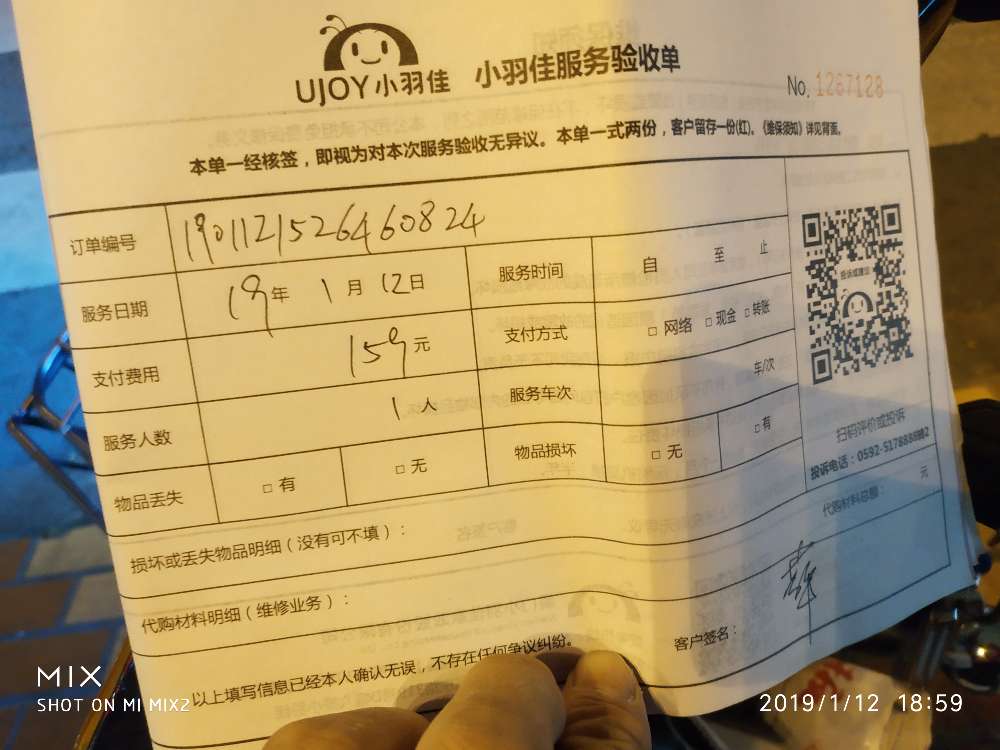 UJOY小羽佳 小羽佳服务验收单
No. 1267128
本单一经核签，即视为对本次服务验收无异议。本单一式两份，客户留存一份(红)。《维保须知》详见背面。
订单编号 1901121526460824
服务日期 19年 1月 12日 服务时间 自 至 止
支付费用 159元 支付方式 □ 网络 □ 现金 □ 转账
服务人数 1人 服务车次 车/次
物品丢失 □ 有 □ 无 物品损坏 □ 无 □ 有
投诉或建议
扫码评价或投诉
投诉电话：0592-5178886
损坏或丢失物品明细（没有可不填）：
代购材料总额： 元
代购材料明细（维修业务）：
以上填写信息已经本人确认无误，不存在任何争议纠纷。
客户签名：
MIX
SHOT ON MI MIX2
2019/1/12 18:59